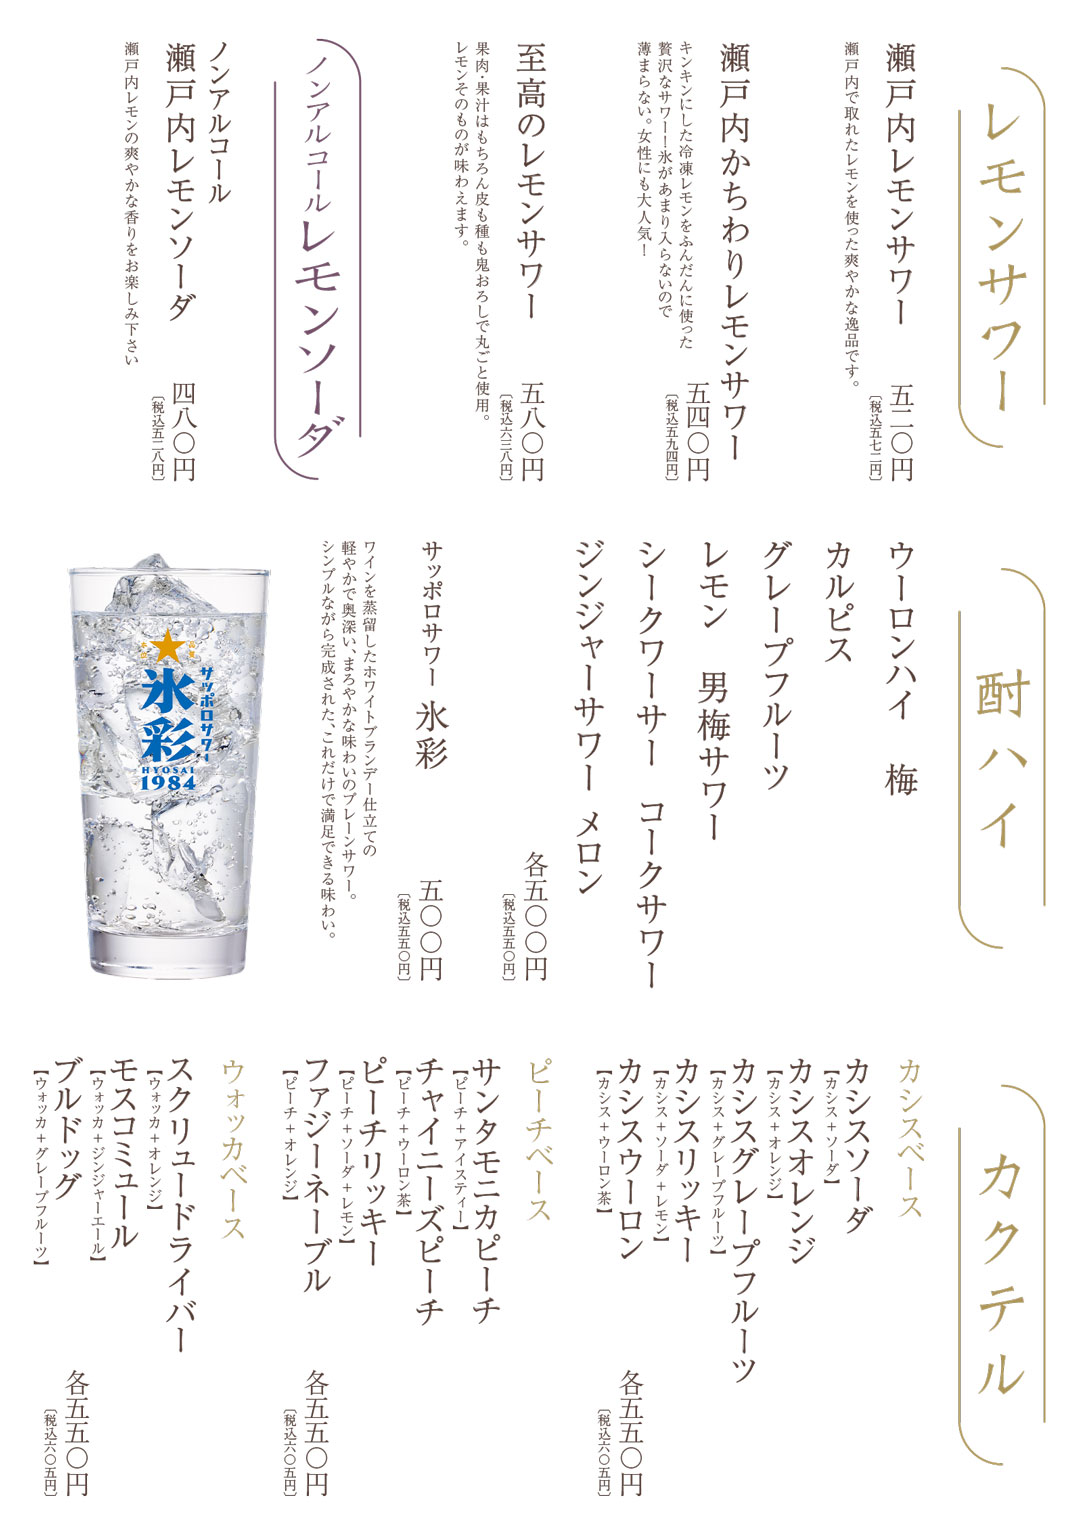 レモンサワー
瀬戸内レモンサワー
瀬戸内で取れたレモンを使った爽やかな逸品です。
五二〇円
〔税込五七二円〕
瀬戸内かちわりレモンサワー
キンキンにした冷凍レモンをふんだんに使った
贅沢なサワー！氷があまり入らないので
薄まらない。女性にも大人気！
五四〇円
〔税込五九四円〕
至高のレモンサワー
果肉・果汁はもちろん皮も種も鬼おろしで丸ごと使用。
レモンそのものが味わえます。
五八〇円
〔税込六三八円〕
ノンアルコールレモンソーダ
ノンアルコール
瀬戸内レモンソーダ
瀬戸内レモンの爽やかな香りをお楽しみ下さい
四八〇円
〔税込五二八円〕
酎ハイ
ウーロンハイ　梅
カルピス
グレープフルーツ
レモン　男梅サワー
シークワーサー　コークサワー
ジンジャーサワー　メロン
各五〇〇円
〔税込五五〇円〕
サッポロサワー 氷彩
ワインを蒸留したホワイトブランデー仕立ての
軽やかで奥深い、まろやかな味わいのプレーンサワー。
シンプルながら完成された、これだけで満足できる味わい。
五〇〇円
〔税込五五〇円〕
サッポロサワー
氷彩
HYOSAI
1984
カクテル
カシスベース
カシスソーダ
【カシス+ソーダ】
カシスオレンジ
【カシス+オレンジ】
カシスグレープフルーツ
【カシス+グレープフルーツ】
カシスリッキー
【カシス+ソーダ+レモン】
カシスウーロン
【カシス+ウーロン茶】
各五五〇円
〔税込六〇五円〕
ピーチベース
サンタモニカピーチ
【ピーチ+アイスティー】
チャイニーズピーチ
【ピーチ+ウーロン茶】
ピーチリッキー
【ピーチ+ソーダ+レモン】
ファジーネーブル
【ピーチ+オレンジ】
各五五〇円
〔税込六〇五円〕
ウォッカベース
スクリュードライバー
【ウォッカ+オレンジ】
モスコミュール
【ウォッカ+ジンジャーエール】
ブルドッグ
【ウォッカ+グレープフルーツ】
各五五〇円
〔税込六〇五円〕